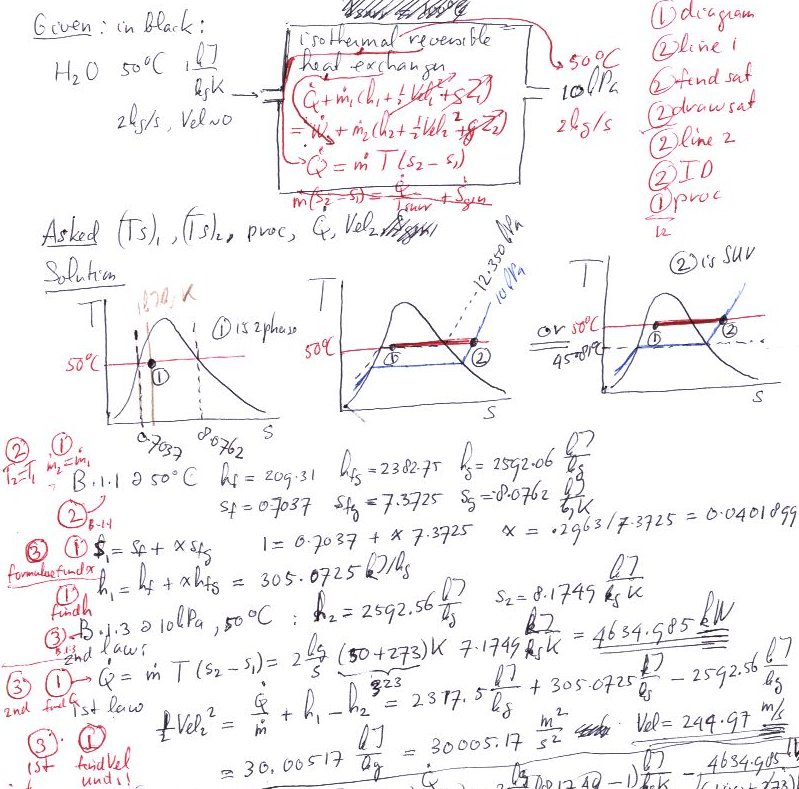 Given: in black:
H₂O 50°C 1 kJ/kgK
2kg/s, Vel≈0
isothermal reversible
heat exchanger
Q̇ + ṁ₁(h₁ + ½Vel₁² + gZ₁)
= Ẇ + ṁ₂(h₂ + ½Vel₂² + gZ₂)
Q̇ = ṁ T (s₂ – s₁)
ṁ(s₂ – s₁) = Q̇/Tsurr + Ṡgen
50°C
10 kPa
2kg/s
① diagram
② line 1
② find sat
② draw sat
② line 2
② ID
① proc
12
Asked (Ts)₁, (Ts)₂, proc, Q̇, Vel₂
Solution
T
① is 2 phase
50°C
①
0.7037
8.0762
s
T
12.350 kPa
10 kPa
50°C
①
②
s
or
T
② is SUV
50°C
45.81°C
①
②
s
② T₂=T₁
① ṁ₂=ṁ₁
B.1.1 @ 50°C hf = 209.31 hfg = 2382.75 hg = 2592.06 kJ/kg
sf = 0.7037 sfg = 7.3725 sg = 8.0762 kJ/kgK
② B-1-1
③ ① s₁ = sf + x sfg 1 = 0.7037 + x 7.3725 x = .2963/7.3725 = 0.0401899
formulae find x
h₁ = hf + x hfg = 305.0725 kJ/kg
① find h
③ B.1.3
B.1.3 @ 10kPa, 50°C : h₂ = 2592.56 kJ/kg s₂ = 8.1749 kJ/kgK
2nd law:
③ 2nd ① find Q
Q̇ = ṁ T (s₂ – s₁) = 2 kg/s (50+273)K 7.1749 kJ/kgK = 4634.985 kW
323
1st law
½Vel₂² = Q̇/ṁ + h₁ – h₂ = 2317.5 kJ/kg + 305.0725 kJ/kg – 2592.56 kJ/kg
③ 1st ① find Vel
= 30.00517 kJ/kg = 30005.17 m²/s² Vel = 244.97 m/s